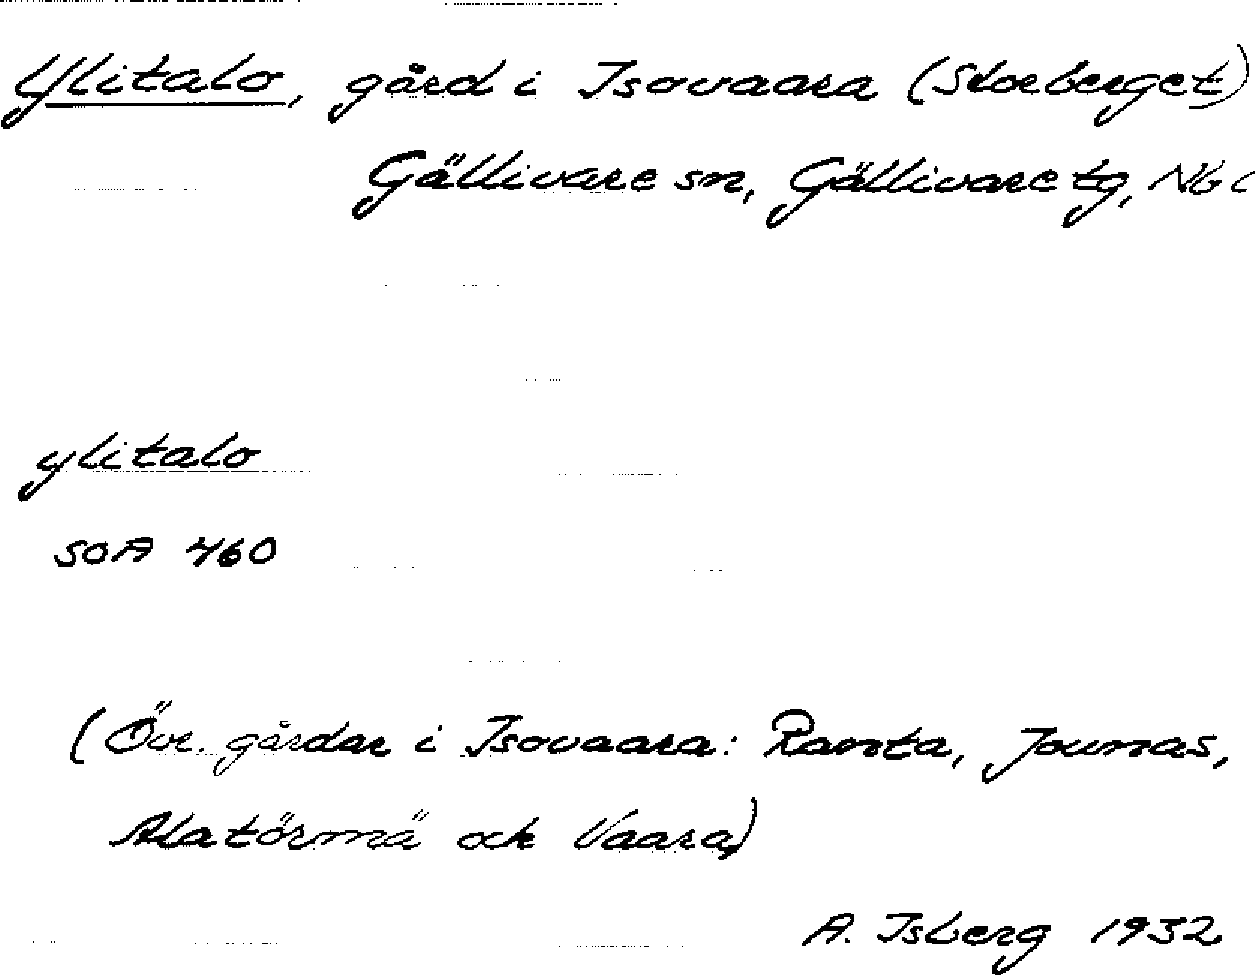 Ylitalo, gård i Isovaara (Storberget)
Gällivare sn, Gällivare tg, Nb
ylitalo
SOA 460
(Övr. gårdar i Isovaara: Ranta, Jounas,
Alatörmä och Vaara)
A. Isberg 1932